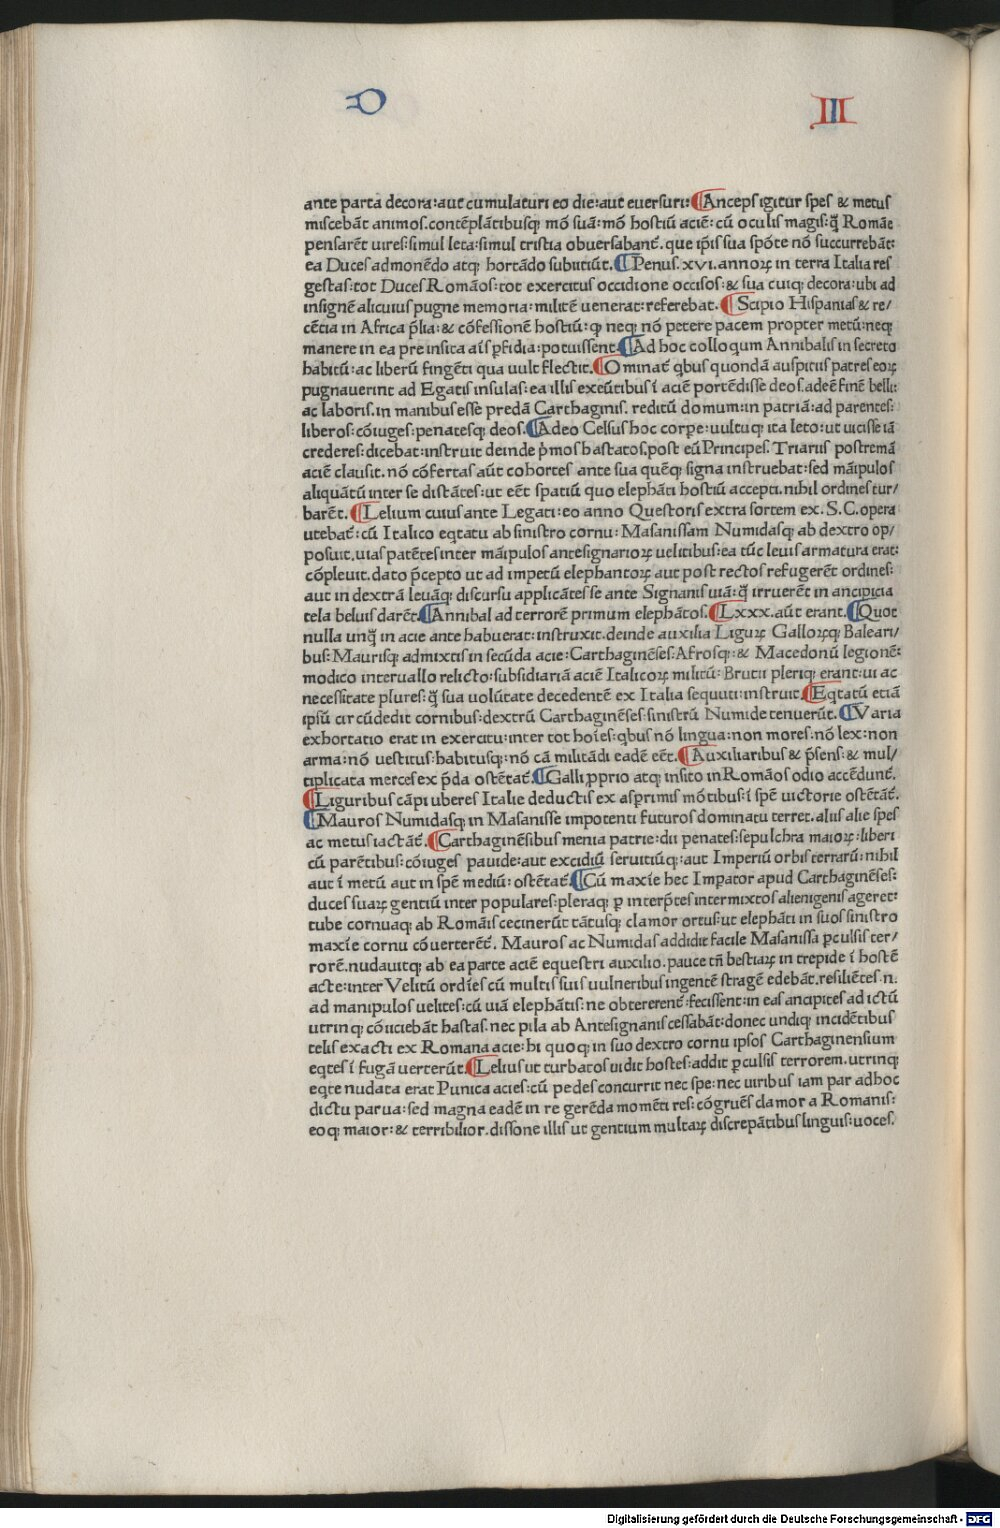 D III
ante parta decora: aut cumulaturi eo die: aut euersuri: ¶ Anceps igitur spes & metus
miscebāt animos. contēplātibusq; mō suā: mō hostiū aciē: cū oculis magis: q̄ Romāe
pensarēt uires: simul leta: simul tristia obuersabant̄. que ip̄is sua spōte nō succurrebāt:
ea Duces admonēdo atq; hortādo subiitiūt. ¶ Penus. xvi. annoꝝ in terra Italia res
gestas: tot Duces Romāos: tot exercitus occidione occisos: & sua cuiq; decora: ubi ad
insignē alicuius pugne memoria: militē uenerat: referebat. ¶ Scipio Hispanias & re/
cētia in Africa p̄lia: & cōfessionē hostiū: ꝙ neq; nō petere pacem propter metū: neq;
manere in ea pre insita aīs ꝑfidia: potuissent. ¶ Ad hoc colloqum Annibalis in secreto
habitū: ac liberū fingēti qua uult flectit. ¶ Ominat̄ qbus quondā auspitiis patres eoꝝ
pugnauerint ad Egatis insulas: ea illis exeūtibus ī aciē portēdisse deos. adeē finē belli:
ac laboris. in manibus esse predā Carthaginis. reditū domum: in patriā: ad parentes:
liberos: cōiuges: penatesq; deos. ¶ Adeo Celsus hoc corpe: uultuq; ita leto: ut uicisse iā
crederes: dicebat: instruit deinde p̄mos hastatos. post eū Principes. Triariis postremā
aciē clausit. nō cōfertas aūt cohortes ante sua quēq; signa instruebat: sed māipulos
aliquātū inter se distātes: ut eēt spatiū quo elephāti hostiū accepti. nihil ordines tur/
barēt. ¶ Lelium cuius ante Legati: eo anno Questoris extra sortem ex. S. C. opera
utebat̄: cū Italico eqtatu ab sinistro cornu: Masanissam Numidasq; ab dextro op/
posuit. uias patētes inter māipulos antesignarioꝝ uelitibus: ea tūc leuis armatura erat:
cōpleuit. dato p̄cepto ut ad impetū elephantoꝝ aut post rectos refugerēt ordines:
aut in dextrā leuāq; discursu applicātes se ante Signanis uiā: q̄ irruerēt in ancipicia
tela beluis darēt. ¶ Annibal ad terrorē primum elephātos. ¶ Lxxx. aūt erant. ¶ Quot
nulla unq̄ in acie ante habuerat: instruxit. deinde auxilia Liguꝝ Galloꝝq; Baleari/
bus: Maurisq; admixtis in secūda acie: Carthaginēses: Afrosq;: & Macedonū legionē:
modico interuallo relicto: subsidiariā aciē Italicoꝝ militū: Brutii pleriq; erant: ui ac
necessitate plures: q̄ sua uolūtate decedentē ex Italia sequuti: instruit. ¶ Eqtatū etiā
ipsū circūdedit cornibus: dextrū Carthaginēses: sinistrū Numide tenuerūt. ¶ Varia
exhortatio erat in exercitu: inter tot hoīes: qbus nō lingua: non mores: nō lex: non
arma: nō uestitus: habitusq;: nō cā militādi eadē eēt. ¶ Auxiliaribus & p̄sens: & mul/
tiplicata merces ex p̄da ostētat̄. ¶ Galli ꝓprio atq; insito in Romāos odio accēdunt̄.
¶ Liguribus cāpi uberes Italie deductis ex asꝑrimis mōtibus: ī spē uictorie ostētāt̄.
¶ Mauros Numidasq; in Masanisse impotenti futuros dominatu terret. aliis alie spes
ac metus iactāt̄. ¶ Carthaginēsibus menia patrie: dii penates: sepulchra maioꝝ: liberi
cū parētibus: cōiuges pauide: aut excidiū seruitiūq;: aut Imperiū orbis terrarū: nihil
aut ī metū aut in spē mediū: ostētat̄. ¶ Cū maxīe hec Imꝑator apud Carthaginēses:
duces suaꝝ gentiū inter populares: pleraq; ꝑ interp̄tes intermixtos alienigenis ageret:
tube cornuaq; ab Romāis cecinerūt tātusq; clamor ortus: ut elephāti in suos sinistro
maxīe cornu cōuerterēt̄. Mauros ac Numidas addidit facile Masanissa ꝑculsis ter/
rorē. nudauitq; ab ea parte aciē equestri auxilio. pauce tn̄ bestiaꝝ in trepide ī hostē
acte: inter Velitū ordīes cū multis suis uulneribus ingentē stragē edebāt. resiliētes. n.
ad manipulos uelites: cū uiā elephātis: ne obtererent̄ : fecissent: in eas ancipites ad ictū
utrinq; cōiiciebāt hastas. nec pila ab Antesignanis cessabāt: donec undiq; incidētibus
telis exacti ex Romana acie: hi quoq; in suo dextro cornu ipsos Carthaginensium
eqtes ī fugā uerterūt. ¶ Lelius ut turbatos uidit hostes: addit ꝑculsis terrorem. utrinq;
eqte nudata erat Punica acies: cū pedes concurrit nec spe: nec uiribus iam par ad hoc
dictu parua: sed magna eadē in re gerēda momēti res: cōgruēs clamor a Romanis:
eoq; maior: & terribilior. dissone illis ut gentium multaꝝ discrepātibus linguis: uoces.
Digitalisierung gefördert durch die Deutsche Forschungsgemeinschaft - DFG